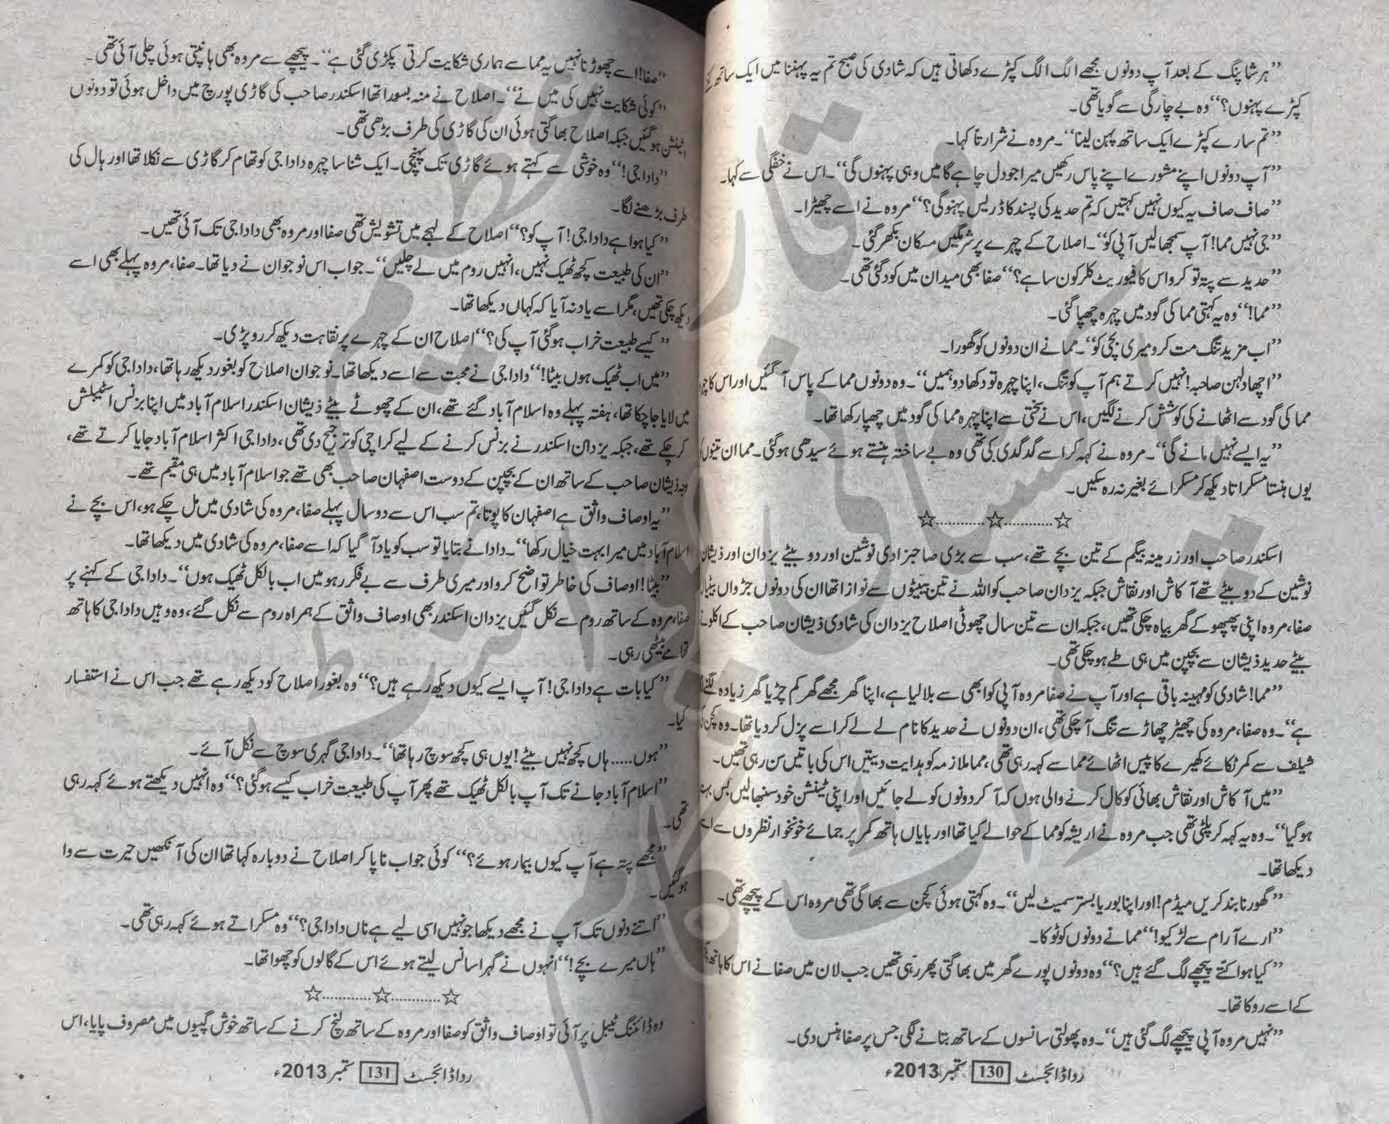 ”ہر شاپنگ کے بعد آپ دونوں مجھے الگ الگ کپڑے دکھاتی ہیں کہ شادی کی صبح تم یہ پہننا میں ایک ساتھ کتنے
کپڑے پہنوں؟“ وہ بے چارگی سے گویا تھی۔
”تم سارے کپڑے ایک ساتھ پہن لینا“۔ مروہ نے شرارتاً کہا۔
”آپ دونوں اپنے مشورے اپنے پاس رکھیں میرا جو دل چاہے گا میں وہی پہنوں گی“۔ اس نے خفگی سے کہا۔
”صاف صاف یہ کیوں نہیں کہتیں کہ تم حدید کی پسند کا ڈریس پہنو گی؟“ مروہ نے اسے چھیڑا۔
”جی نہیں مما! آپ سمجھا لیں آپی کو“۔ اصلاح کے چہرے پر شرمگیں مسکان بکھر گئی۔
”حدید سے پتہ تو کرو اس کا فیوریٹ کلر کون سا ہے؟“ صفا بھی میدان میں کود گئی تھی۔
”مما!“ وہ یہ کہتی مما کی گود میں چہرہ چھپا گئی۔
”اب مزید تنگ مت کرو میری بچی کو“۔ ممانے ان دونوں کو گھورا۔
”اچھا دلہن صاحبہ! نہیں کرتے ہم آپ کو تنگ، اپنا چہرہ تو دکھا دو ہمیں“۔ وہ دونوں مما کے پاس آ گئیں اور اس کا چہرہ
مما کی گود سے اٹھانے کی کوشش کرنے لگیں، اس نے سختی سے اپنا چہرہ مما کی گود میں چھپا رکھا تھا۔
”یہ ایسے نہیں مانے گی“۔ مروہ نے کہہ کر اسے گدگدی کی تھی وہ بے ساختہ ہنستے ہوئے سیدھی ہو گئی۔ مما ان تینوں کو
یوں ہنستا مسکراتا دیکھ کر مسکرائے بغیر نہ رہ سکیں۔
☆............☆............☆
اسکندر صاحب اور زرمینہ بیگم کے تین بچے تھے، سب سے بڑی صاحبزادی نوشین اور دو بیٹے یزدان اور ذیشان
نوشین کے دو بیٹے تھے آکاش اور نقاش جبکہ یزدان صاحب کو اللہ نے تین بیٹیوں سے نوازا تھا ان کی دونوں جڑواں بیٹیاں
صفا، مروہ اپنی پھپھو کے گھر بیاہ چکی تھیں، جبکہ ان سے تین سال چھوٹی اصلاح یزدان کی شادی ذیشان صاحب کے اکلوتے
بیٹے حدید ذیشان سے بچپن میں ہی طے ہو چکی تھی۔
”مما! شادی کو مہینہ باقی ہے اور آپ نے صفا مروہ آپی کو ابھی سے بلا لیا ہے، اپنا گھر مجھے گھر کم چڑیا گھر زیادہ لگنے لگا
ہے“۔ وہ صفا، مروہ کی چھیڑ چھاڑ سے تنگ آ چکی تھی، ان دونوں نے حدید کا نام لے لے کر اسے پزل کر دیا تھا۔ وہ کچن کی
شیلف سے کمر ٹکائے کھیرے کا پیس اٹھائے مما سے کہہ رہی تھی، مما ملازمہ کو ہدایت دیتیں اس کی باتیں سن رہی تھیں۔
”میں آکاش اور نقاش بھائی کو کال کرنے والی ہوں کہ آ کر دونوں کو لے جائیں اور اپنی ٹینشن خود سنبھالیں بس بہت
ہو گیا“۔ وہ یہ کہہ کر پلٹی تھی جب مروہ نے اریشہ کو مما کے حوالے کیا تھا اور بایاں ہاتھ کمر پر جمائے خونخوار نظروں سے اسے
دیکھا تھا۔
”گھورنا بند کریں میڈم! اور اپنا بوریا بستر سمیٹ لیں“۔ وہ کہتی ہوئی کچن سے بھاگی تھی مروہ اس کے پیچھے تھی۔
”ارے آرام سے لڑکیو!“ ممانے دونوں کو ٹوکا۔
”کیا ہوا کتے پیچھے لگ گئے ہیں؟“ وہ دونوں پورے گھر میں بھاگتی پھر رہی تھیں جب لان میں صفا نے اس کا ہاتھ پکڑ
کے اسے روکا تھا۔
”نہیں مروہ آپی پیچھے لگ گئی ہیں“۔ وہ پھولتی سانسوں کے ساتھ بتانے لگی جس پر صفا ہنس دی۔
رداڈائجسٹ 130 ستمبر 2013ء
”صفا! اسے چھوڑنا نہیں یہ مما سے ہماری شکایت کرتی پکڑی گئی ہے“۔ پیچھے سے مروہ بھی ہانپتی ہوئی چلی آئی تھی۔
”کوئی شکایت نہیں کی میں نے“۔ اصلاح نے منہ بسورا تھا اسکندر صاحب کی گاڑی پورچ میں داخل ہوئی تو دونوں
اٹینشن ہو گئیں جبکہ اصلاح بھاگتی ہوئی ان کی گاڑی کی طرف بڑھی تھی۔
”داداجی!“ وہ خوشی سے کہتے ہوئے گاڑی تک پہنچی۔ ایک شناسا چہرہ داداجی کو تھام کر گاڑی سے نکلا تھا اور ہال کی
طرف بڑھنے لگا۔
”کیا ہوا ہے داداجی! آپ کو؟“ اصلاح کے لہجے میں تشویش تھی صفا اور مروہ بھی داداجی تک آئی تھیں۔
”ان کی طبیعت کچھ ٹھیک نہیں، انہیں روم میں لے چلیں“۔ جواب اس نوجوان نے دیا تھا۔ صفا، مروہ پہلے بھی اسے
دیکھ چکی تھیں، مگر اسے یاد نہ آیا کہ کہاں دیکھا تھا۔
”کیسے طبیعت خراب ہو گئی آپ کی؟“ اصلاح ان کے چہرے پر نقاہت دیکھ کر رو پڑی۔
”میں اب ٹھیک ہوں بیٹا!“ داداجی نے محبت سے اسے دیکھا تھا۔ نوجوان اصلاح کو بغور دیکھ رہا تھا، داداجی کو کمرے
میں لایا جا چکا تھا، ہفتہ پہلے وہ اسلام آباد گئے تھے، ان کے چھوٹے بیٹے ذیشان اسکندر اسلام آباد میں اپنا بزنس اسٹیبلش
کر چکے تھے، جبکہ یزدان اسکندر نے بزنس کرنے کے لیے کراچی کو ترجیح دی تھی، داداجی اکثر اسلام آباد جایا کرتے تھے،
وجہ ذیشان صاحب کے ساتھ ان کے بچپن کے دوست اصفہان صاحب بھی تھے جو اسلام آباد میں ہی مقیم تھے۔
”یہ اوصاف واثق ہے اصفہان کا پوتا، تم سب اس سے دو سال پہلے صفا، مروہ کی شادی میں مل چکے ہو، اس بچے نے
اسلام آباد میں میرا بہت خیال رکھا“۔ دادا نے بتایا تو سب کو یاد آ گیا کہ اسے صفا، مروہ کی شادی میں دیکھا تھا۔
”بیٹا! اوصاف کی خاطر تواضع کرو اور میری طرف سے بے فکر رہو میں اب بالکل ٹھیک ہوں“۔ داداجی کے کہنے پر
صفا، مروہ کے ساتھ روم سے نکل گئیں یزدان اسکندر بھی اوصاف واثق کے ہمراہ روم سے نکل گئے، وہ وہیں داداجی کا ہاتھ
تھامے بیٹھی رہی۔
”کیا بات ہے داداجی! آپ ایسے کیوں دیکھ رہے ہیں؟“ وہ بغور اصلاح کو دیکھ رہے تھے جب اس نے استفسار
کیا۔
”ہوں..... ہاں کچھ نہیں بیٹے! یوں ہی کچھ سوچ رہا تھا“۔ داداجی گہری سوچ سے نکل آئے۔
”اسلام آباد جانے تک آپ بالکل ٹھیک تھے پھر آپ کی طبیعت خراب کیسے ہو گئی؟“ وہ انہیں دیکھتے ہوئے کہہ رہی
تھی۔
”مجھے پتہ ہے آپ کیوں بیمار ہوئے؟“ کوئی جواب نا پا کر اصلاح نے دوبارہ کہا تھا ان کی آنکھیں حیرت سے وا
ہو گئیں۔
”اتنے دنوں تک آپ نے مجھے دیکھا جو نہیں اسی لیے ہے ناں داداجی؟“ وہ مسکراتے ہوئے کہہ رہی تھی۔
”ہاں میرے بچے!“ انہوں نے گہرا سانس لیتے ہوئے اس کے گالوں کو چھوا تھا۔
☆............☆............☆
وہ ڈائننگ ٹیبل پر آئی تو اوصاف واثق کو صفا اور مروہ کے ساتھ لنچ کرنے کے ساتھ خوش گپیوں میں مصروف پایا، اس
رداڈائجسٹ 131 ستمبر 2013ء